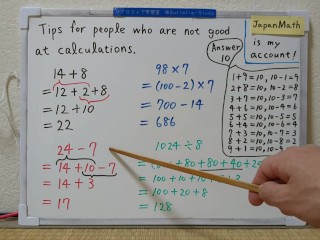 Tips for people who are not good
at calculations.
JapanMath
is my
account!
Answer
10
1+9=10, 10-1=9
2+8=10, 10-2=8
3+7=10, 10-3=7
4+6=10, 10-4=6
5+5=10, 10-5=5
6+4=10, 10-6=4
7+3=10, 10-7=3
8+2=10, 10-8=2
9+1=10, 10-9=1
14+8
=12+2+8
=12+10
=22
98×7
=(100-2)×7
=700-14
=686
24-7
=14+10-7
=14+3
=17
1024÷8
+80+80+40+20
=100+10+10
=100+20+8
=128